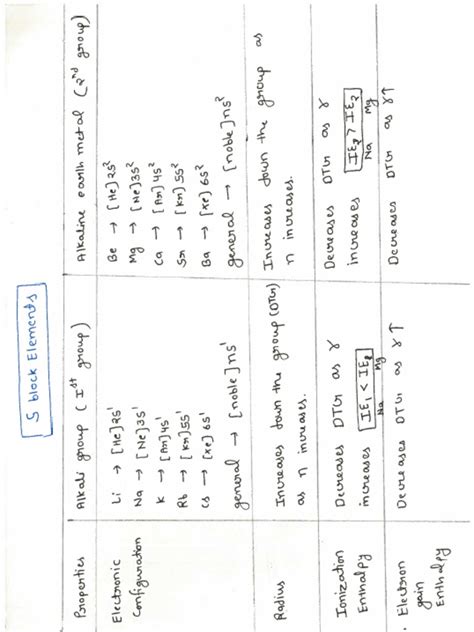 S block Elements
Properties
Alkali group (Ist group)
Alkaline earth metal (2nd group)
Electronic
Configuration
Li → [He]2s1
Na → [Ne]3s1
K → [Ar]4s1
Rb → [Kr]5s1
Cs → [Xe]6s1
general → [noble]ns1
Be → [He]2s2
Mg → [Ne]3s2
Ca → [Ar]4s2
Sr → [Kr]5s2
Ba → [Xe]6s2
general → [noble]ns2
Radius
Increases down the group (DTG)
as n increases.
Increases down the group as
n increases.
Ionization
Enthalpy
Decreases DTG as r
increases IE1 < IE2
Na Mg
Decreases DTG as r
increases IE2 > IE2
Na Mg
Electron
gain
Enthalpy
Decreases DTG as r↑
Decreases DTG as r↑